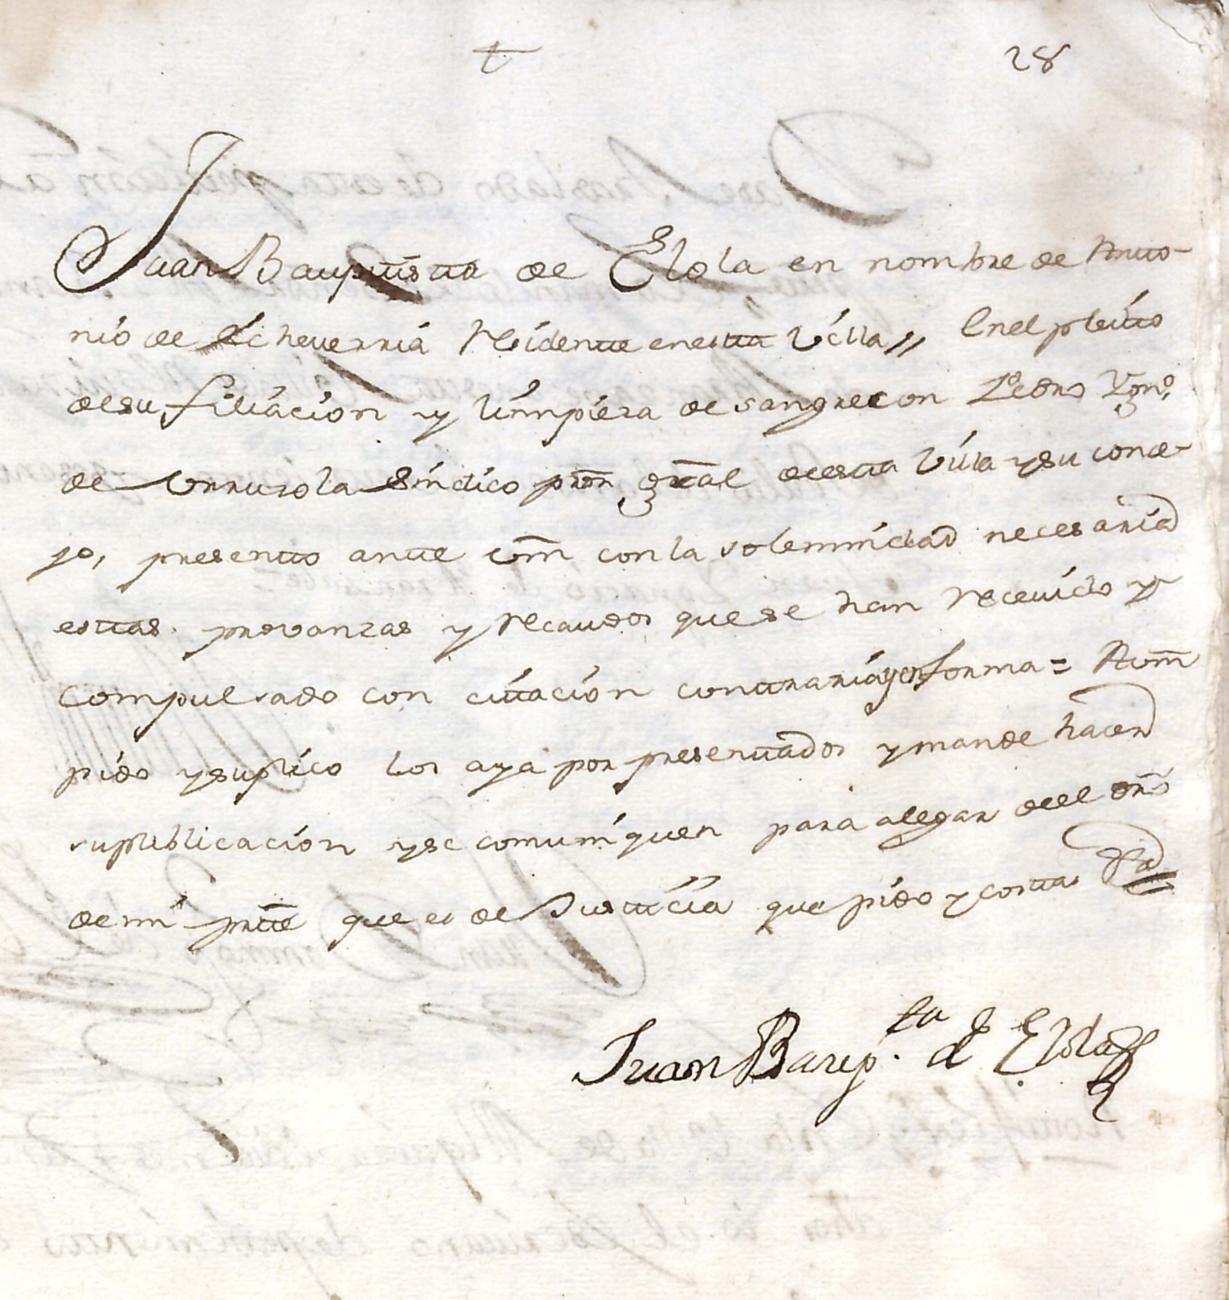 28
Juan Bauptista de Elola en nombre de Anto-
nio de Echeverria Residente enesta Villa, Enel pleito
desu filiacion y limpieza de sangre con Pedro Ygn.º
de Urruzola Sindico pror. gral deesta Villa ysu conce-
jo, presento ante Vm con la solemnidad necesaria
estas provanzas y recaudos que se han recevido y
compulsado con citacion contraria y en forma = A Vm
pido ysuplico los aya por presentados y mande hacer
supublicacion yse comuniquen para alegar deel dro
de mi parte que es de Justicia que pido y costas
Juan Baup.ta de Elola